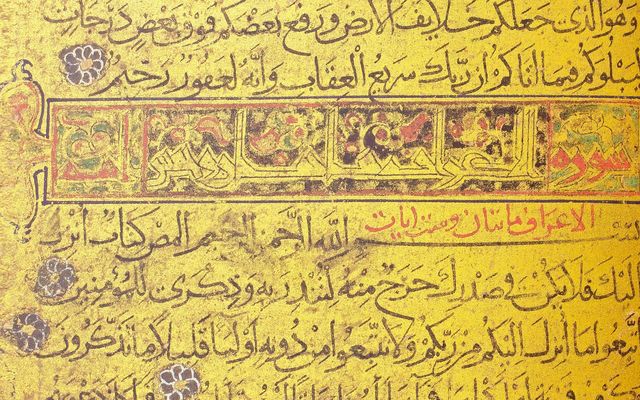 وهو الذي جعلكم خلايف الارض ورفع بعضكم فوق بعض درجات
ليبلوكم فيما اتاكم ان ربك سريع العقاب وانه لغفور رحيم
سوره الاعراف
الاعراف مائتان وست ايات
بسم الله الرحمن الرحيم المص كتاب انزل
اليك فلا يكن في صدرك حرج منه لتنذر به وذكرى للمؤمنين
اتبعوا ما انزل اليكم من ربكم ولا تتبعوا من دونه اوليا قليلا ما تذكرون